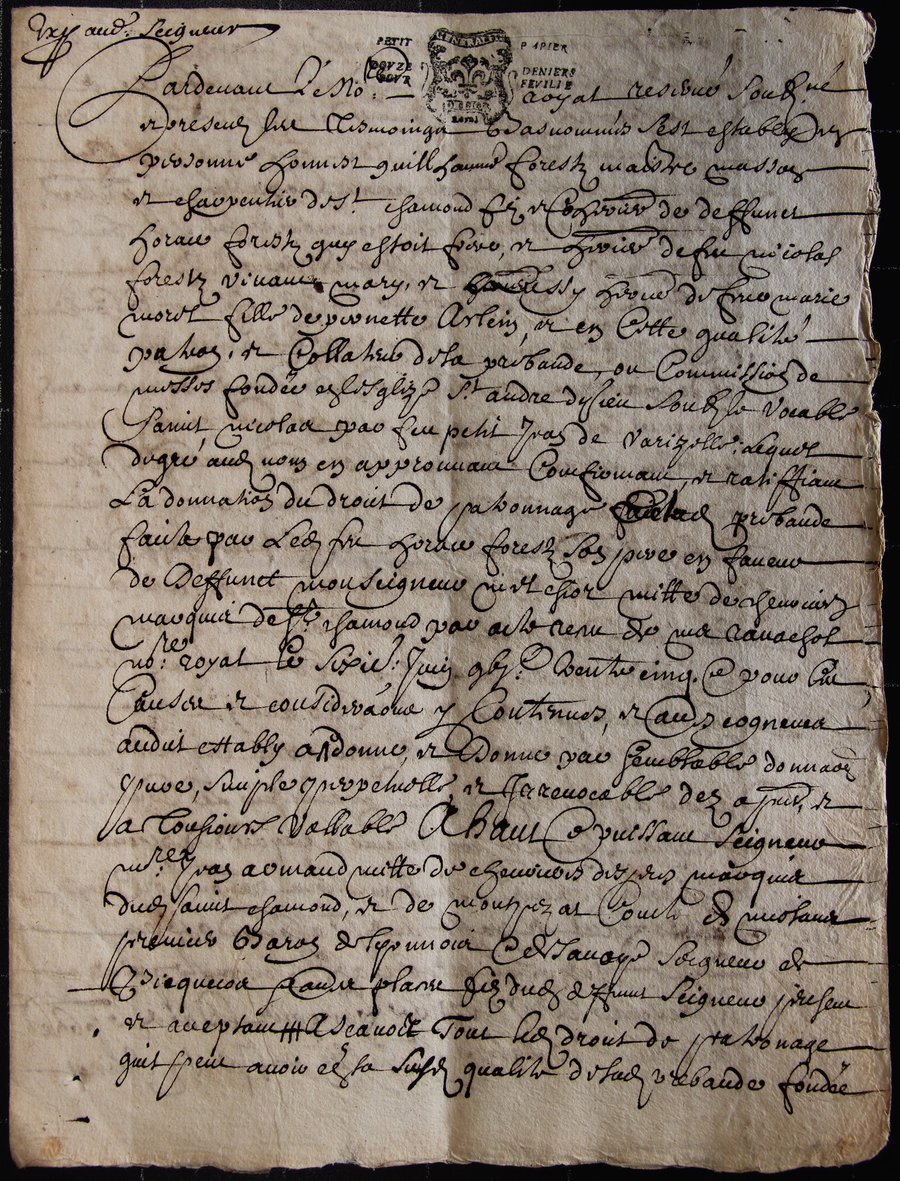 aud. Seigneur
PETIT PAPIER
DOVZE POVR DENIERS FEVILLE
GENERALITE
Pardevant Le No.re royal resérvé Soub.né
et presens les tesmoingz basnommés s'est estably en
personne honnest guilhaume forestz maistre masson
et charpentier de S.t chamond filz et Cohérier de deffunct
horace forestz quy estoit frere, et hérier de feu nicolas
forestz vivant mary, et hérier de feue marie
moret fille de pernette Arlein, et en Cette qualité
patron, et Collateur de la prébande, ou Commission de
messes fondée en lesglize S.t andre d'ysieu Soubz le vocable
Sainct nicolas par feu petit Jean de varizelle. Lequel
de gré aud nom en approuvant Confirmant, et ratiffiant
La donnation du droit de patronnage prébande
faicte par Led feu horace forestz son pere en faveur
de deffunct monseigneur melchior mitte de chevrieres
marquis de S.t chamond par acte receu de me ravachol
no.re royal le Sixie. Juin vente cinq. Et pour Les
Causes et considéraõns y Contenues, et
audit estably a donné, et donne par semblable donnaõn
pure, Simple perpetuelle, et Irrevocable dez a pnt, et
a Tousjours vallable A haut Et puissant Seigneur
m.re Jean armand mitte de chevrieres marquis
dud Sainct chamond, et de montpezat Comte de miolans
premier Baron de lyonnois Et de Savoye Seigneur de
autre places filz dud deffunct Seigneur present
et acceptant Ascavoir Tout led droit de patronage
quil peut avoir en sa Susd qualité de lad prébande fondée